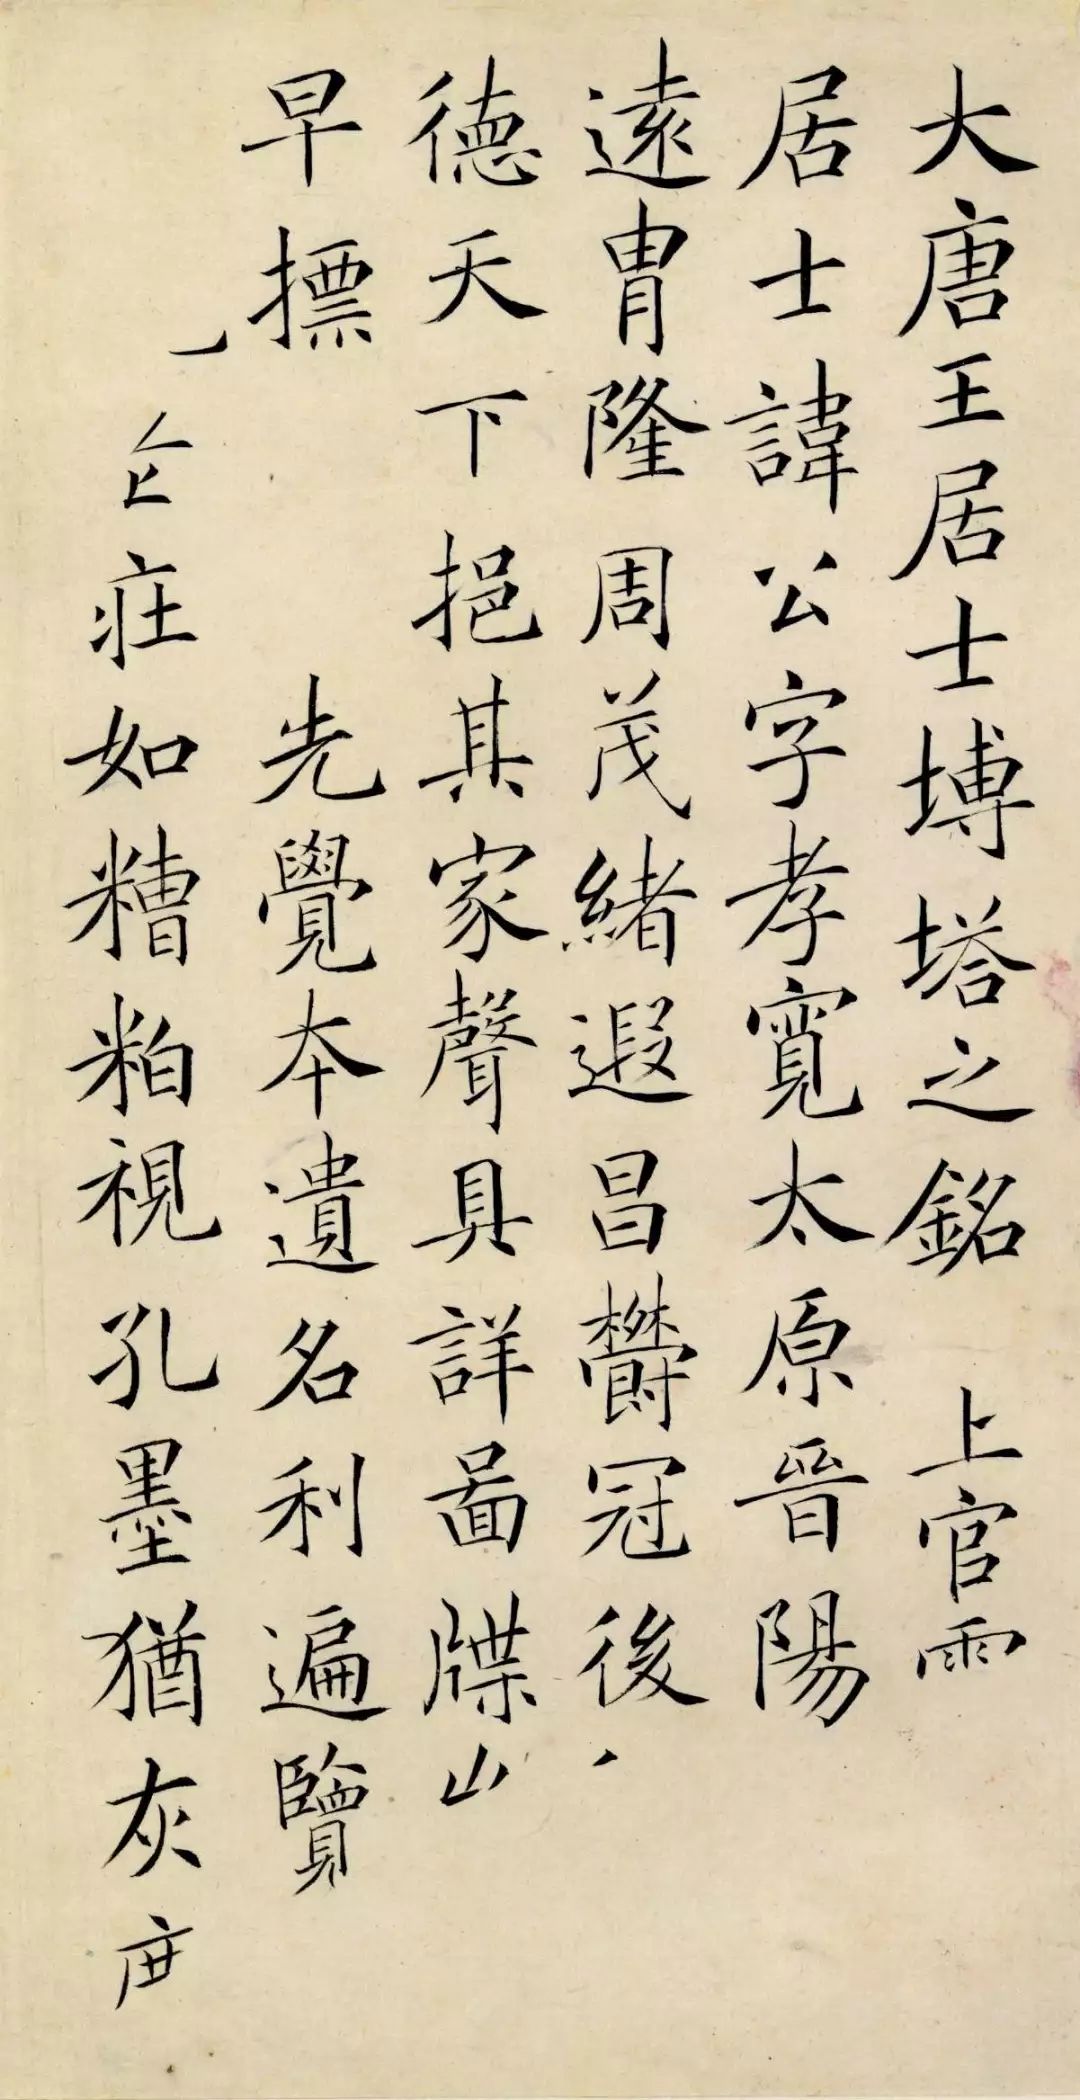 大唐王居士塼塔之銘 上官
居士諱公字孝寬太原晉陽
遠胄隆周茂緒遐昌欝冠後
德天下挹其家聲具詳啚牒
早摽 先覺本遺名利遍覽
莊如糟粕視孔墨猶灰